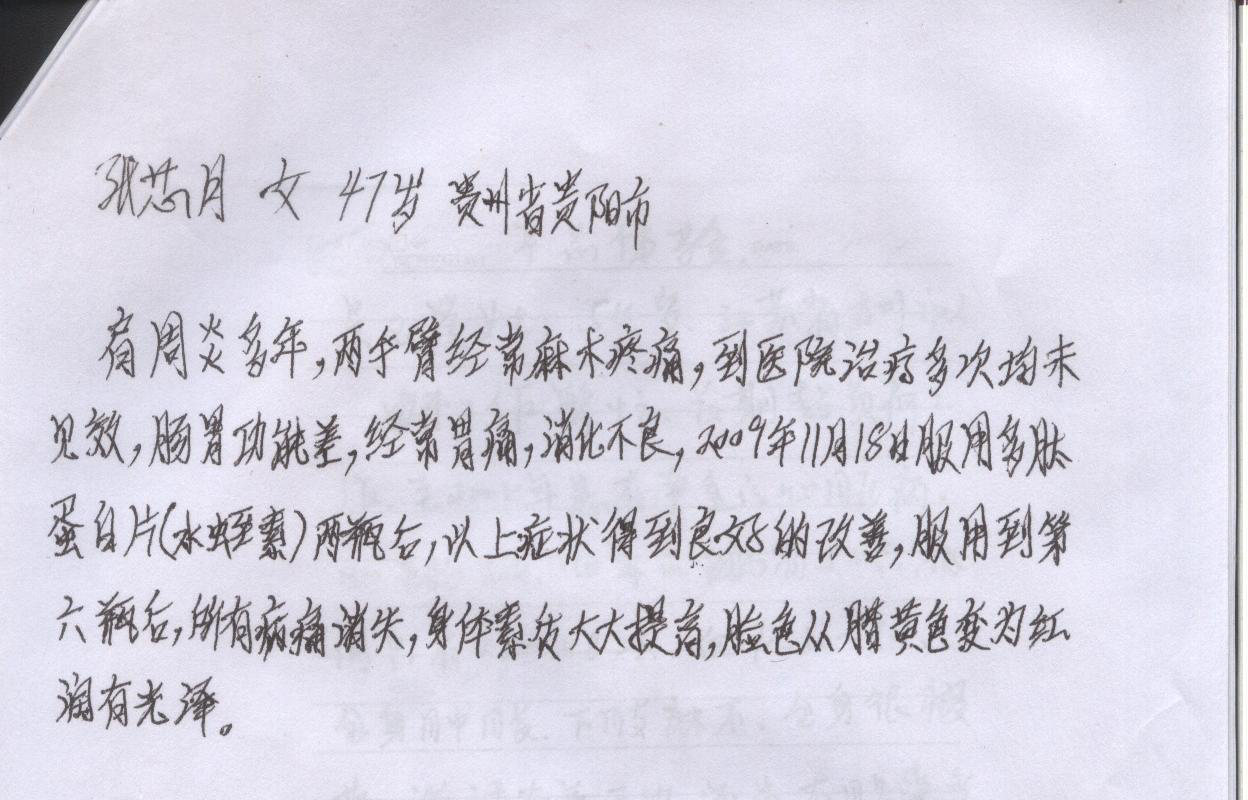 张芯月 女 47岁 贵州省贵阳市
肩周炎多年,两手臂经常麻木疼痛,到医院治疗多次均未
见效,肠胃功能差,经常胃痛,消化不良,2009年11月18日服用多肽
蛋白片(水蛭素)两瓶后,以上症状得到良好的改善,服用到第
六瓶后,所有病痛消失,身体素质大大提高,脸色从腊黄色变为红
润有光泽。